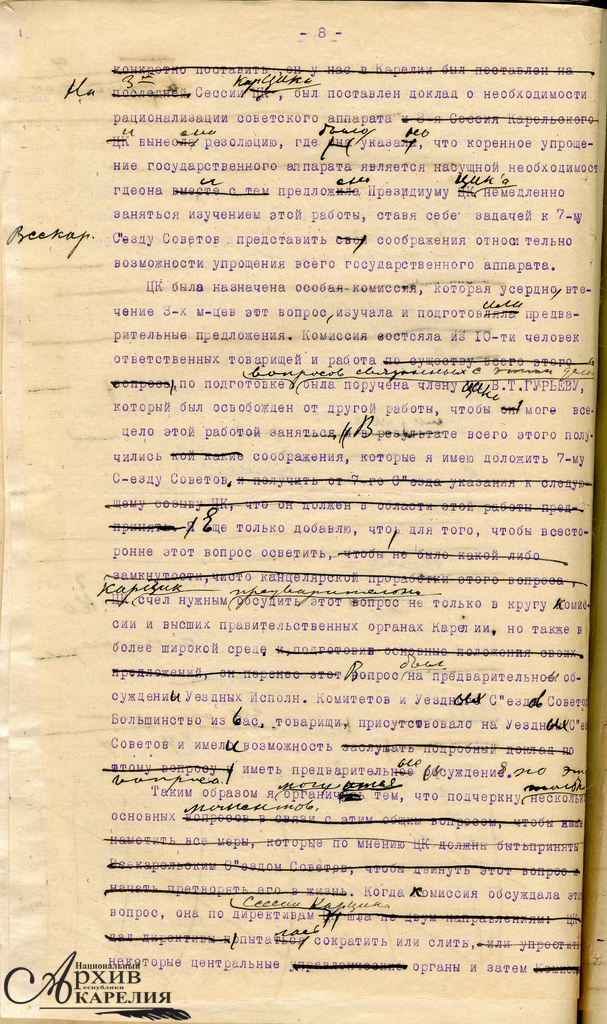 - 8 -
конкретно поставить, он у нас в Карелии был поставлен на
На 3й КарЦика
последней Сессии ЦК, был поставлен доклад о необходимости
рационализации советского аппарата и 3-я Сессия Карельского
ЦК вынесла резолюцию, где было указано, что коренное упроще-
ние государственного аппарата является насущной необходимост
гдеона вместе с тем предложила Президиуму ЦИК'а немедленно
заняться изучением этой работы, ставя себе задачей к 7-му
Всекар.
С"езду Советов представить свои соображения относительно
возможности упрощения всего государственного аппарата.
ЦК была назначена особая комиссия, которая усердно, вте-
чение 3-х м-цев этт вопрос изучала и подготовляла предва-
рительные предложения. Комиссия состояла из 10-ти человек
ответственных товарищей и работа по существу всего этого
вопросов связанных с этим
вопроса, по подготовке была поручена члену ЦИК В.Т.ГУРЬЕВУ,
который был освобожден от другой работы, чтобы он моге все-
цело этой работой заняться, и В результате всего этого полу-
чились кой какие соображения, которые я имею доложить 7-му
С-езду Советов, и получить от 7-го С"езда указания к следую-
щему созыву ЦК, что он должен в области этой работы пред-
принять. Я Еще только добавлю, что, для того, чтобы всесто-
ронне этот вопрос осветить, чтобы не было какой либо
замкнутости, чисто канцелярской проработки этого вопроса,
КарЦик предварительно
ЦК счел нужным обсудить этот вопрос не только в кругу Комис-
сии и высших правительственных органах Карелии, но также в
более широкой среде и, подготовив основные положения своих
был
предложений, он перенес этот Вопрос на предварительное об-
суждении Уездных Исполн. Комитетов и Уездных С"ездов Советов
Большинство из вас, товарищи, присутствовало на Уездных С"ез
Советов и имели возможность заслушать подробный доклад по
этому вопросу и иметь предварительное обсуждение по
вопроса
Таким образом я могу ограничиться тем, что подчеркну несколько
моментов.
основных вопросов в связи с этим общим вопросом, чтобы
наметить все меры, которые по мнению ЦК должны бытьприняты
Всекарольским С"ездом Советов, чтобы двинуть этот вопрос и
начать претворять его в жизнь. Когда Комиссия обсуждала это
Сессии Карцика
вопрос, она по директивам шла по двум направлениям: ЦК
дал директивы попыталась сократить или слить, или упростить
некоторые центральные управленческие органы и затем
Национальный
АРХИВ
Республики
КАРЕЛИЯ